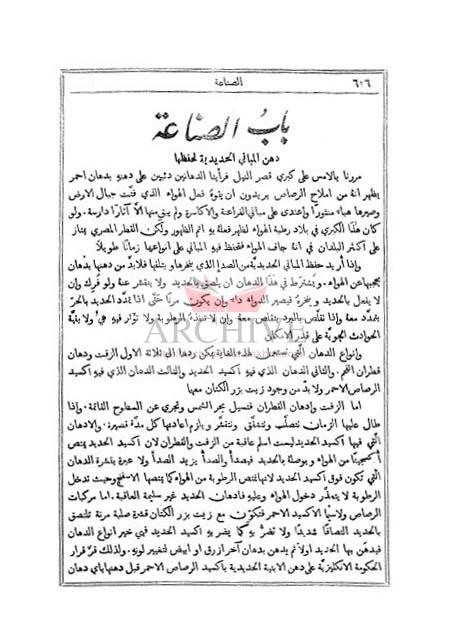 ٦٠٦
الصناعة
باب الصناعة
دهن المباني الحديدية لحفظها
مررنا بالامس على كبري قصر النيل فرأينا الدهانين دئبين على دهنه بدهان احمر
يظهر انه من املاح الرصاص يريدون ان يقوه فعل الهواء الذي فتت جبال الارض
وصيرها هباء منثورًا واعتدى على مباني الفراعنة والاكاسرة ولم يبق منها الا آثارًا دارسة. ولو
كان هذا الكبري في بلاد رطبة الهواء لظهر فعله به اتم الظهور ولكن القطر المصري يمتاز
على اكثر البلدان في انه جاف الهواء فتحفظ فيه المباني على انواعها زمانًا طويلًا
واذا أريد حفظ المباني الحديدية من الصدإ الذي ينخرها ويتلفها فلا بدّ من دهنها بدهان
يحجبها عن الهواء. ويشترط في هذا الدهان ان يلصق بالحديد ولا يتقشر عنه ولو فرك وان
لا يفعل بالحديد وينخره فيصير الدواء داء وان يكون مرنًا حتى اذا تمدد الحديد بالحر
تمدد معه واذا تقلص بالبرد تقلص معه وان لا تنفذه الرطوبة ولا تؤثر فيه هي ولا بقية
الحوادث الجوية على قدر الامكان
ARCHIVE
وانواع الدهان التي تستعمل لهذه الغاية يمكن ردها الى ثلاثة الاول الزفت ودهان
قطران الفحم. والثاني الدهان الذي فيه اكسيد الحديد والثالث الدهان الذي فيه اكسيد
الرصاص الاحمر ولا بدّ من وجود زيت بزر الكتان معها
اما الزفت وادهان القطران فتسيل بحر الشمس وتجري عن السطوح القائمة. واذا
طال عليها الزمان تتصلّب وتتشقّق وتتقشّر ويلزم اعادتها كل مدة قصيرة. والادهان
التي فيها اكسيد الحديد ليست اسلم عاقبة من الزفت والقطران لان اكسيد الحديد يمتص
اكسجينًا من الهواء ويوصله بالحديد فيصدأ والصدأ يزيد الصدأ ولا عبرة بقشرة الدهان
التي تكون فوق اكسيد الحديد لانها تمتص الرطوبة من الهواء كما يمتصها الاسفنج وحيث تدخل
الرطوبة لا يتعذر دخول الهواء وعليه فادهان الحديد غير سليمة العاقبة. اما مركبات
الرصاص ولا سيّما الاكسيد الاحمر فتكوّن مع زيت بزر الكتان قشرة صلبة مرنة تلتصق
بالحديد التصاقًا شديدًا ولا تضرّ به كما يضر به اكسيد الحديد فهي خير انواع الدهان
فيدهن بها الحديد اولًا ثم يدهن بدهان آخر ازرق او ابيض لتغيير لونه. ولذلك قرّ قرار
الحكومة الانكليزية على دهن الابنية الحديدية باكسيد الرصاص الاحمر قبل دهنها باي دهان